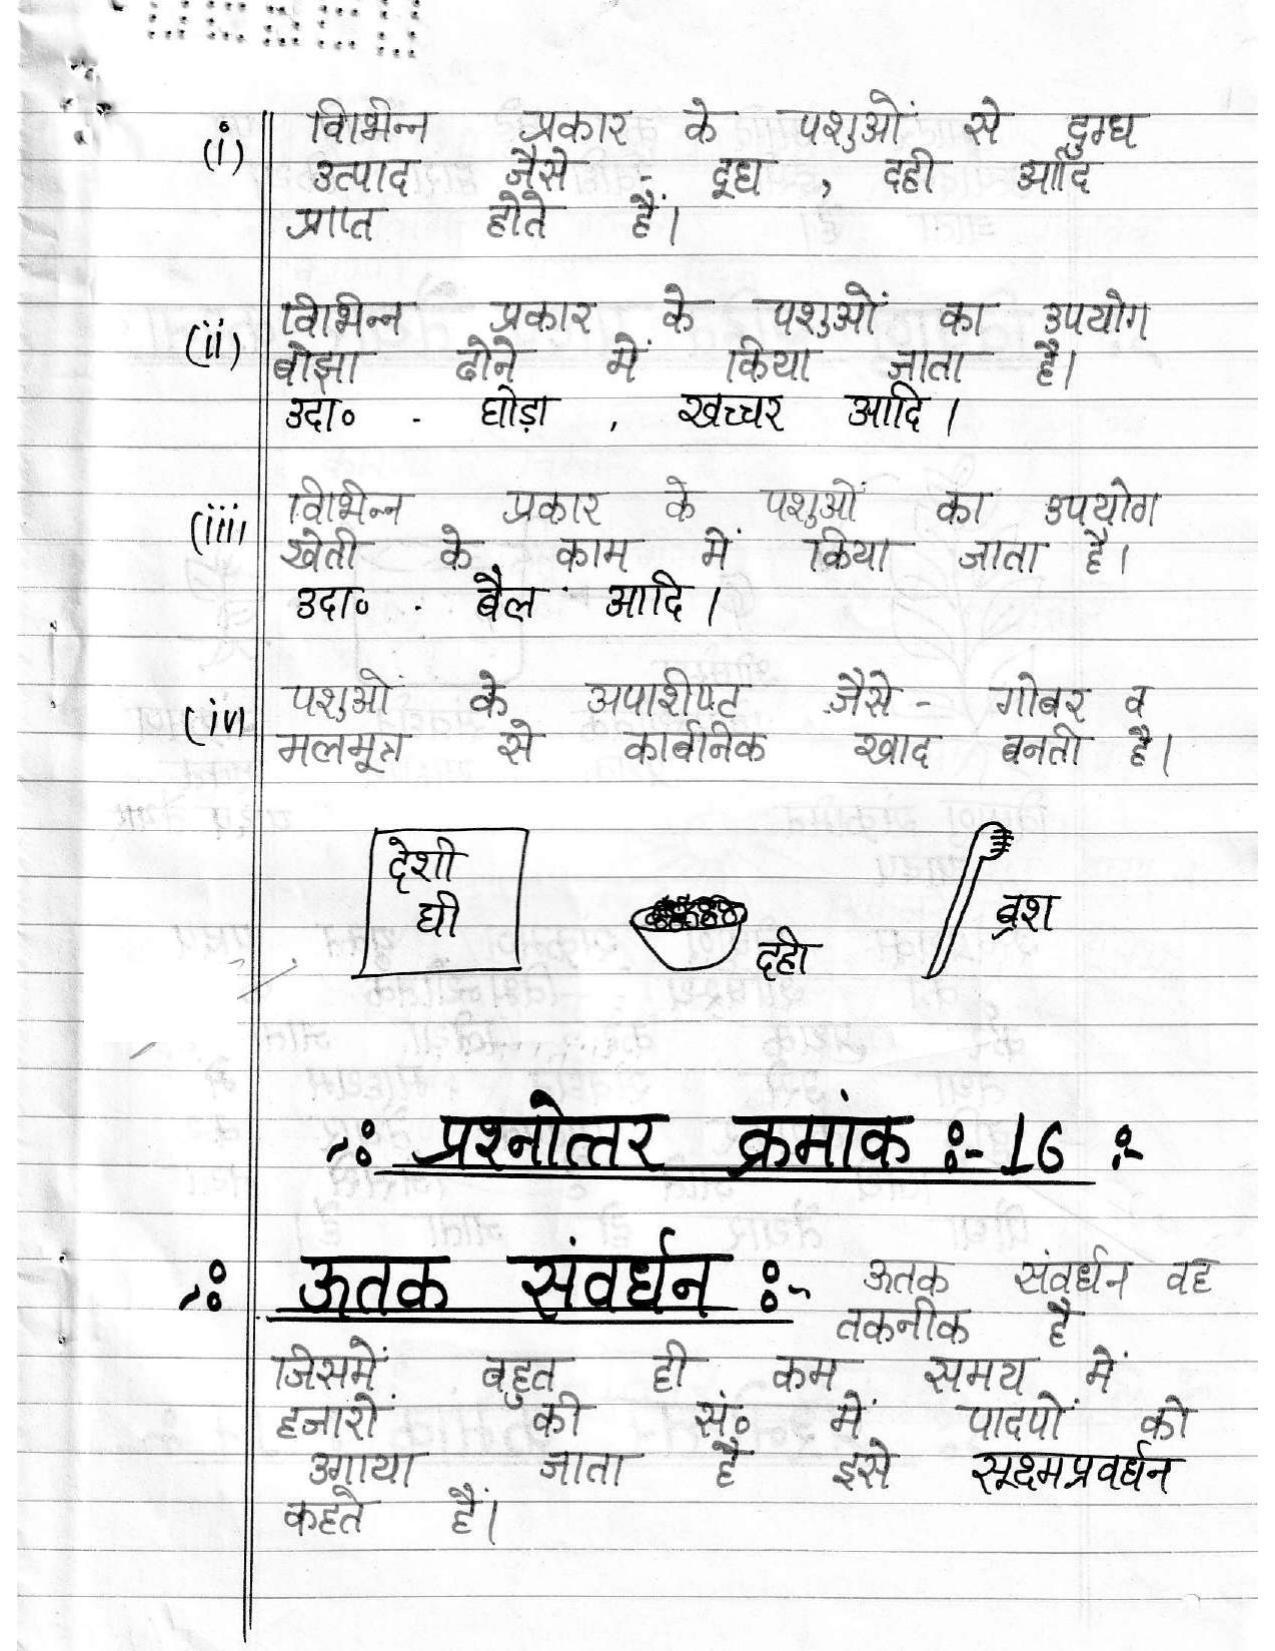 (i) विभिन्न प्रकार के पशुओं से दुग्ध
उत्पाद जैसे - दूध , दही आदि
प्राप्त होते हैं।
(ii) विभिन्न प्रकार के पशुओं का उपयोग
बोझा ढोने में किया जाता है।
उदा० - घोड़ा , खच्चर आदि।
(iii) विभिन्न प्रकार के पशुओं का उपयोग
खेती के काम में किया जाता है।
उदा० - बैल आदि।
(iv) पशुओं के अपशिष्ट जैसे - गोबर व
मलमूत्र से कार्बनिक खाद बनती है।
देशी
घी
दही
ब्रश
-: प्रश्नोत्तर क्रमांक :- 16 :-
-: ऊतक संवर्धन :- ऊतक संवर्धन वह
तकनीक है
जिसमें बहुत ही कम समय में
हजारों की सं० में पादपों को
उगाया जाता है इसे सूक्ष्मप्रवर्धन
कहते हैं।